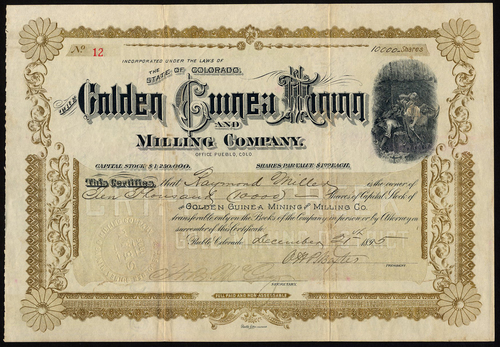 No. 12
10000 Shares
INCORPORATED UNDER THE LAWS OF
THE STATE OF COLORADO.
THE
Golden Guinea Mining
AND
MILLING COMPANY.
OFFICE, PUEBLO, COLO.
CAPITAL STOCK $1,250,000.
SHARES PAR VALUE $1.00 EACH.
This Certifies, that Raymond Miller is the owner of
Ten Thousand (10000) Shares of Capital Stock of
GOLDEN GUINEA MINING AND MILLING CO.
transferable only on the Books of the Company in person or by Attorney on
surrender of this Certificate.
Pueblo Colorado, December 21st 1895
PRESIDENT
SECRETARY
FULL PAID AND NON-ASSESSABLE